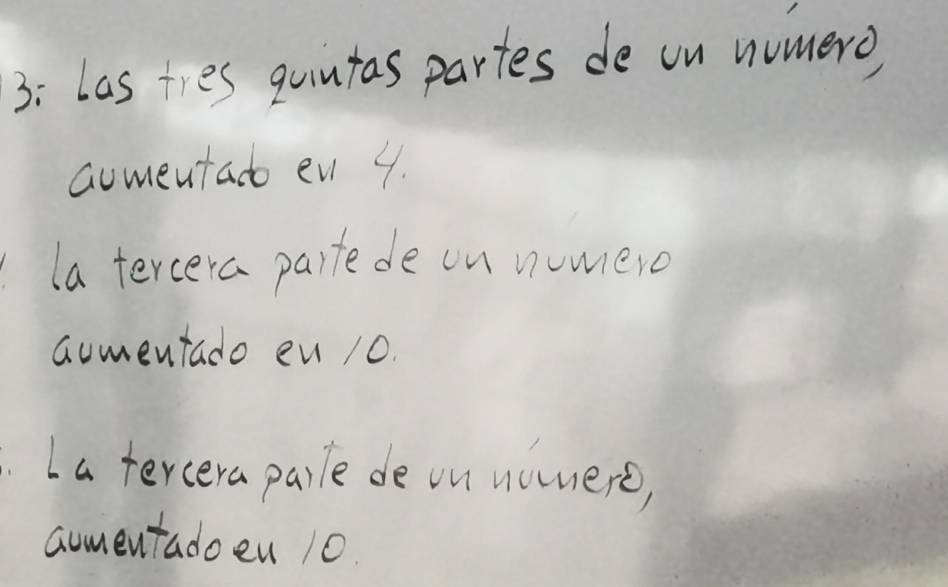 13: Las tres quintas partes de un número,
aumentado en 4.
La tercera parte de un número
aumentado en 10.
La tercera parte de un número,
aumentado en 10.